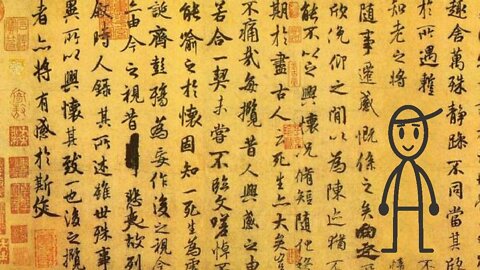 趣舍萬殊靜躁不同當其欣
於所遇蹔
知老之將
隨事遷感慨係之矣向之
欣俛仰之間以為陳迹猶不
能不以之興懷況脩短隨化終
期於盡古人云死生亦大矣豈
不痛哉每攬昔人興感之由
若合一契未嘗不臨文嗟悼
能喻之於懷固知一死生為虛
誕齊彭殤為妄作後之視今
亦由今之視昔悲夫故列
敘時人錄其所述雖世殊事
異所以興懷其致一也後之攬
者亦將有感於斯文